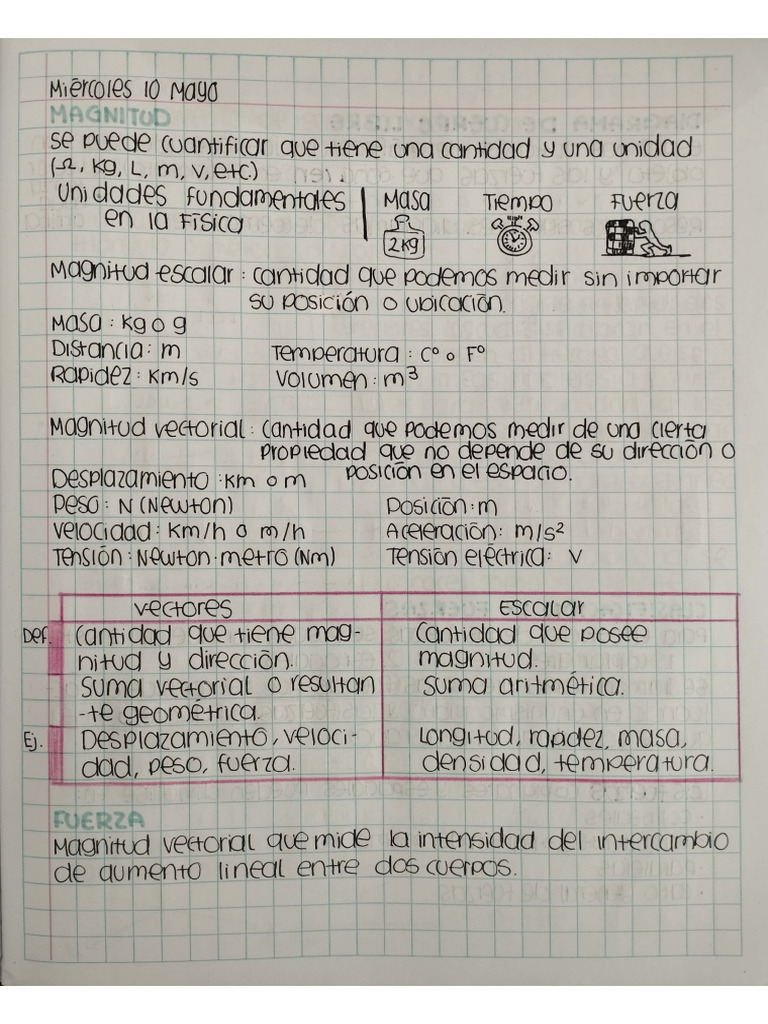 Miércoles 10 Mayo
MAGNITUD
se puede cuantificar que tiene una cantidad y una unidad
(Ω, Kg, L, m, v, etc)
Unidades fundamentales
en la Física
Masa
2 kg
Tiempo
Fuerza
Magnitud escalar: cantidad que podemos medir sin importar
su posición o ubicación.
Masa: Kg o g
Distancia: m
Temperatura: C° o F°
Rapidez: Km/s
Volumen: m³
Magnitud vectorial: Cantidad que podemos medir de una cierta
propiedad que no depende de su dirección o
posición en el espacio.
Desplazamiento: km o m
Peso: N (Newton)
Posición: m
Velocidad: Km/h o m/h
Aceleración: m/s²
Tensión: Newton·metro (Nm)
Tensión eléctrica: V
Vectores
Escalar
Def.
Cantidad que tiene mag-
nitud y dirección.
Cantidad que posee
magnitud.
Suma vectorial o resultan
-te geométrica.
Suma aritmética.
Ej.
Desplazamiento, veloci-
dad, peso, fuerza.
Longitud, rapidez, masa,
densidad, temperatura.
FUERZA
Magnitud vectorial que mide la intensidad del intercambio
de aumento lineal entre dos cuerpos.